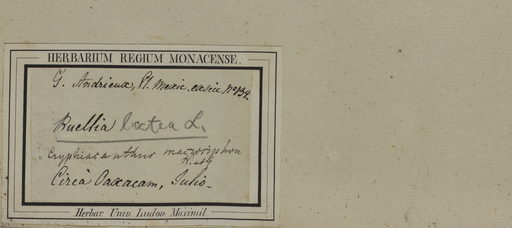 HERBARIUM REGIUM MONACENSE.
G. Andrieux, Pl. Mexic. exsicc. No 132
Ruellia lactea L.
Cryphiacanthus macrosiphon
Circà Oaxacam, Julio.
Herbar. Univ. Ludov. Maximil